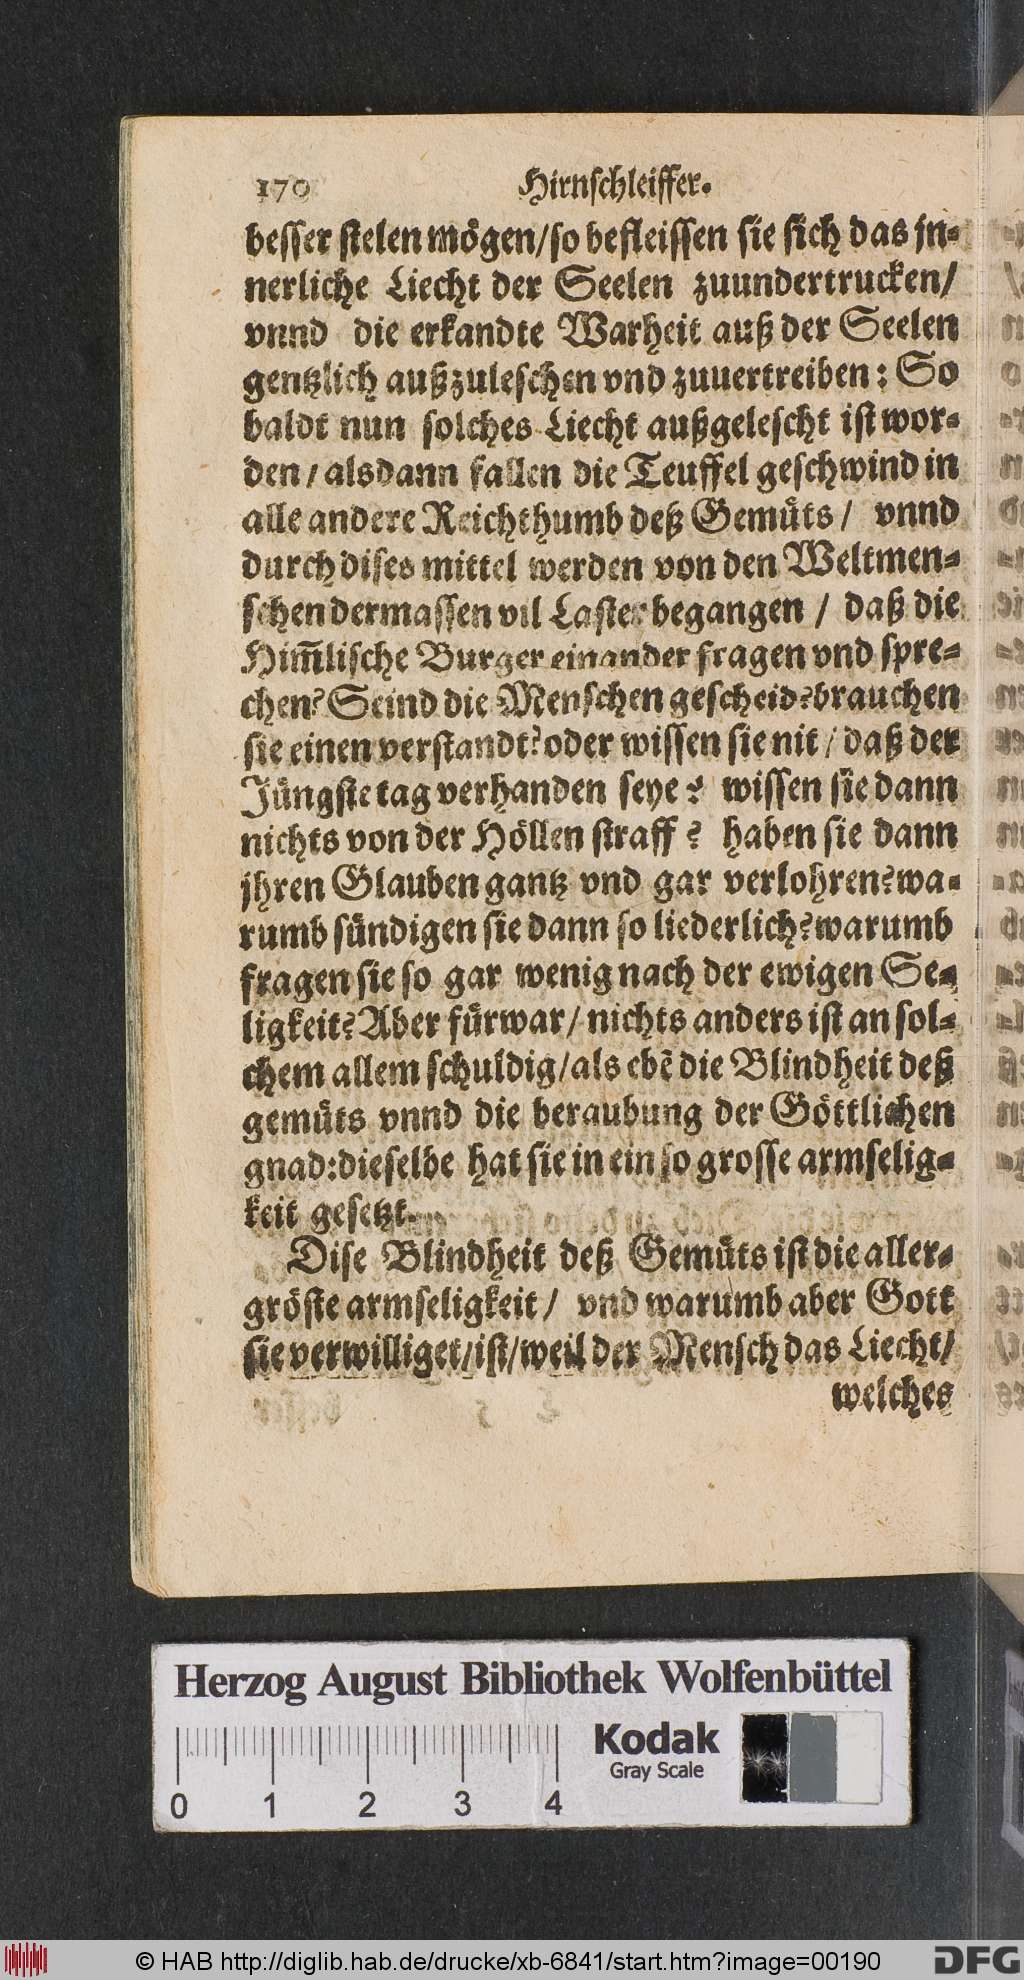 170 Hirnschleiffer.
besser stelen mögen/so befleissen sie sich das jn-
nerliche Liecht der Seelen zuundertrucken/
vnnd die erkandte Warheit auß der Seelen
gentzlich außzuleschen vnd zuuertreiben: So
baldt nun solches Liecht außgelescht ist wor-
den/alsdann fallen die Teuffel geschwind in
alle andere Reichthumb deß Gemüts/ vnnd
durch dises mittel werden von den Weltmen-
schen dermassen vil Laster begangen / daß die
Him̃lische Burger einander fragen vnd spre-
chen? Seind die Menschen gescheid? brauchen
sie einen verstandt? oder wissen sie nit/daß der
Jüngste tag verhanden seye? wissen sie dann
nichts von der Höllen straff? haben sie dann
jhren Glauben gantz vnd gar verlohren? wa-
rumb sündigen sie dann so liederlich? warumb
fragen sie so gar wenig nach der ewigen Se-
ligkeit? Aber fürwar/nichts anders ist an sol-
chem allem schuldig/als ebẽ die Blindheit deß
gemüts vnnd die beraubung der Göttlichen
gnad: dieselbe hat sie in ein so grosse armselig-
keit gesetzt.
Dise Blindheit deß Gemüts ist die aller-
gröste armseligkeit/ vnd warumb aber Gott
sie verwilliget/ist/weil der Mensch das Liecht/
welches
Herzog August Bibliothek Wolfenbüttel
Kodak
Gray Scale
0 1 2 3 4
© HAB http://diglib.hab.de/drucke/xb-6841/start.htm?image=00190
DFG